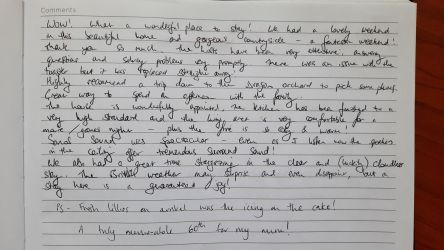 Comments
WOW! What a wonderful place to stay! We had a lovely weekend
in this beautiful home and gorgeous countryside - a fantastic weekend!
Thank you so much. The hosts have been very effective answering
questions and solving problems very promptly. There was an issue with the
toaster but it was replaced straight away!
Highly recommend a trip down to the orchard to pick some plums.
Great way to spend an afternoon with the family.
The house is wonderfully appointed. The kitchen has been finished to a
very high standard and the living area is very comfortable for a
games night - plus the fire is so easy & warm!
Sonos Sound was spectacular - even as I listen now the speakers
in the ceiling offer tremendous surround sound!
We also had a great time stargazing in the clear and (luckily) cloudless
sky. The British weather may surprise and even disappoint, but a
stay here is a guaranteed joy!
Ps - Fresh lillies on arrival was the icing on the cake!
A truly memorable 60th for my mum!